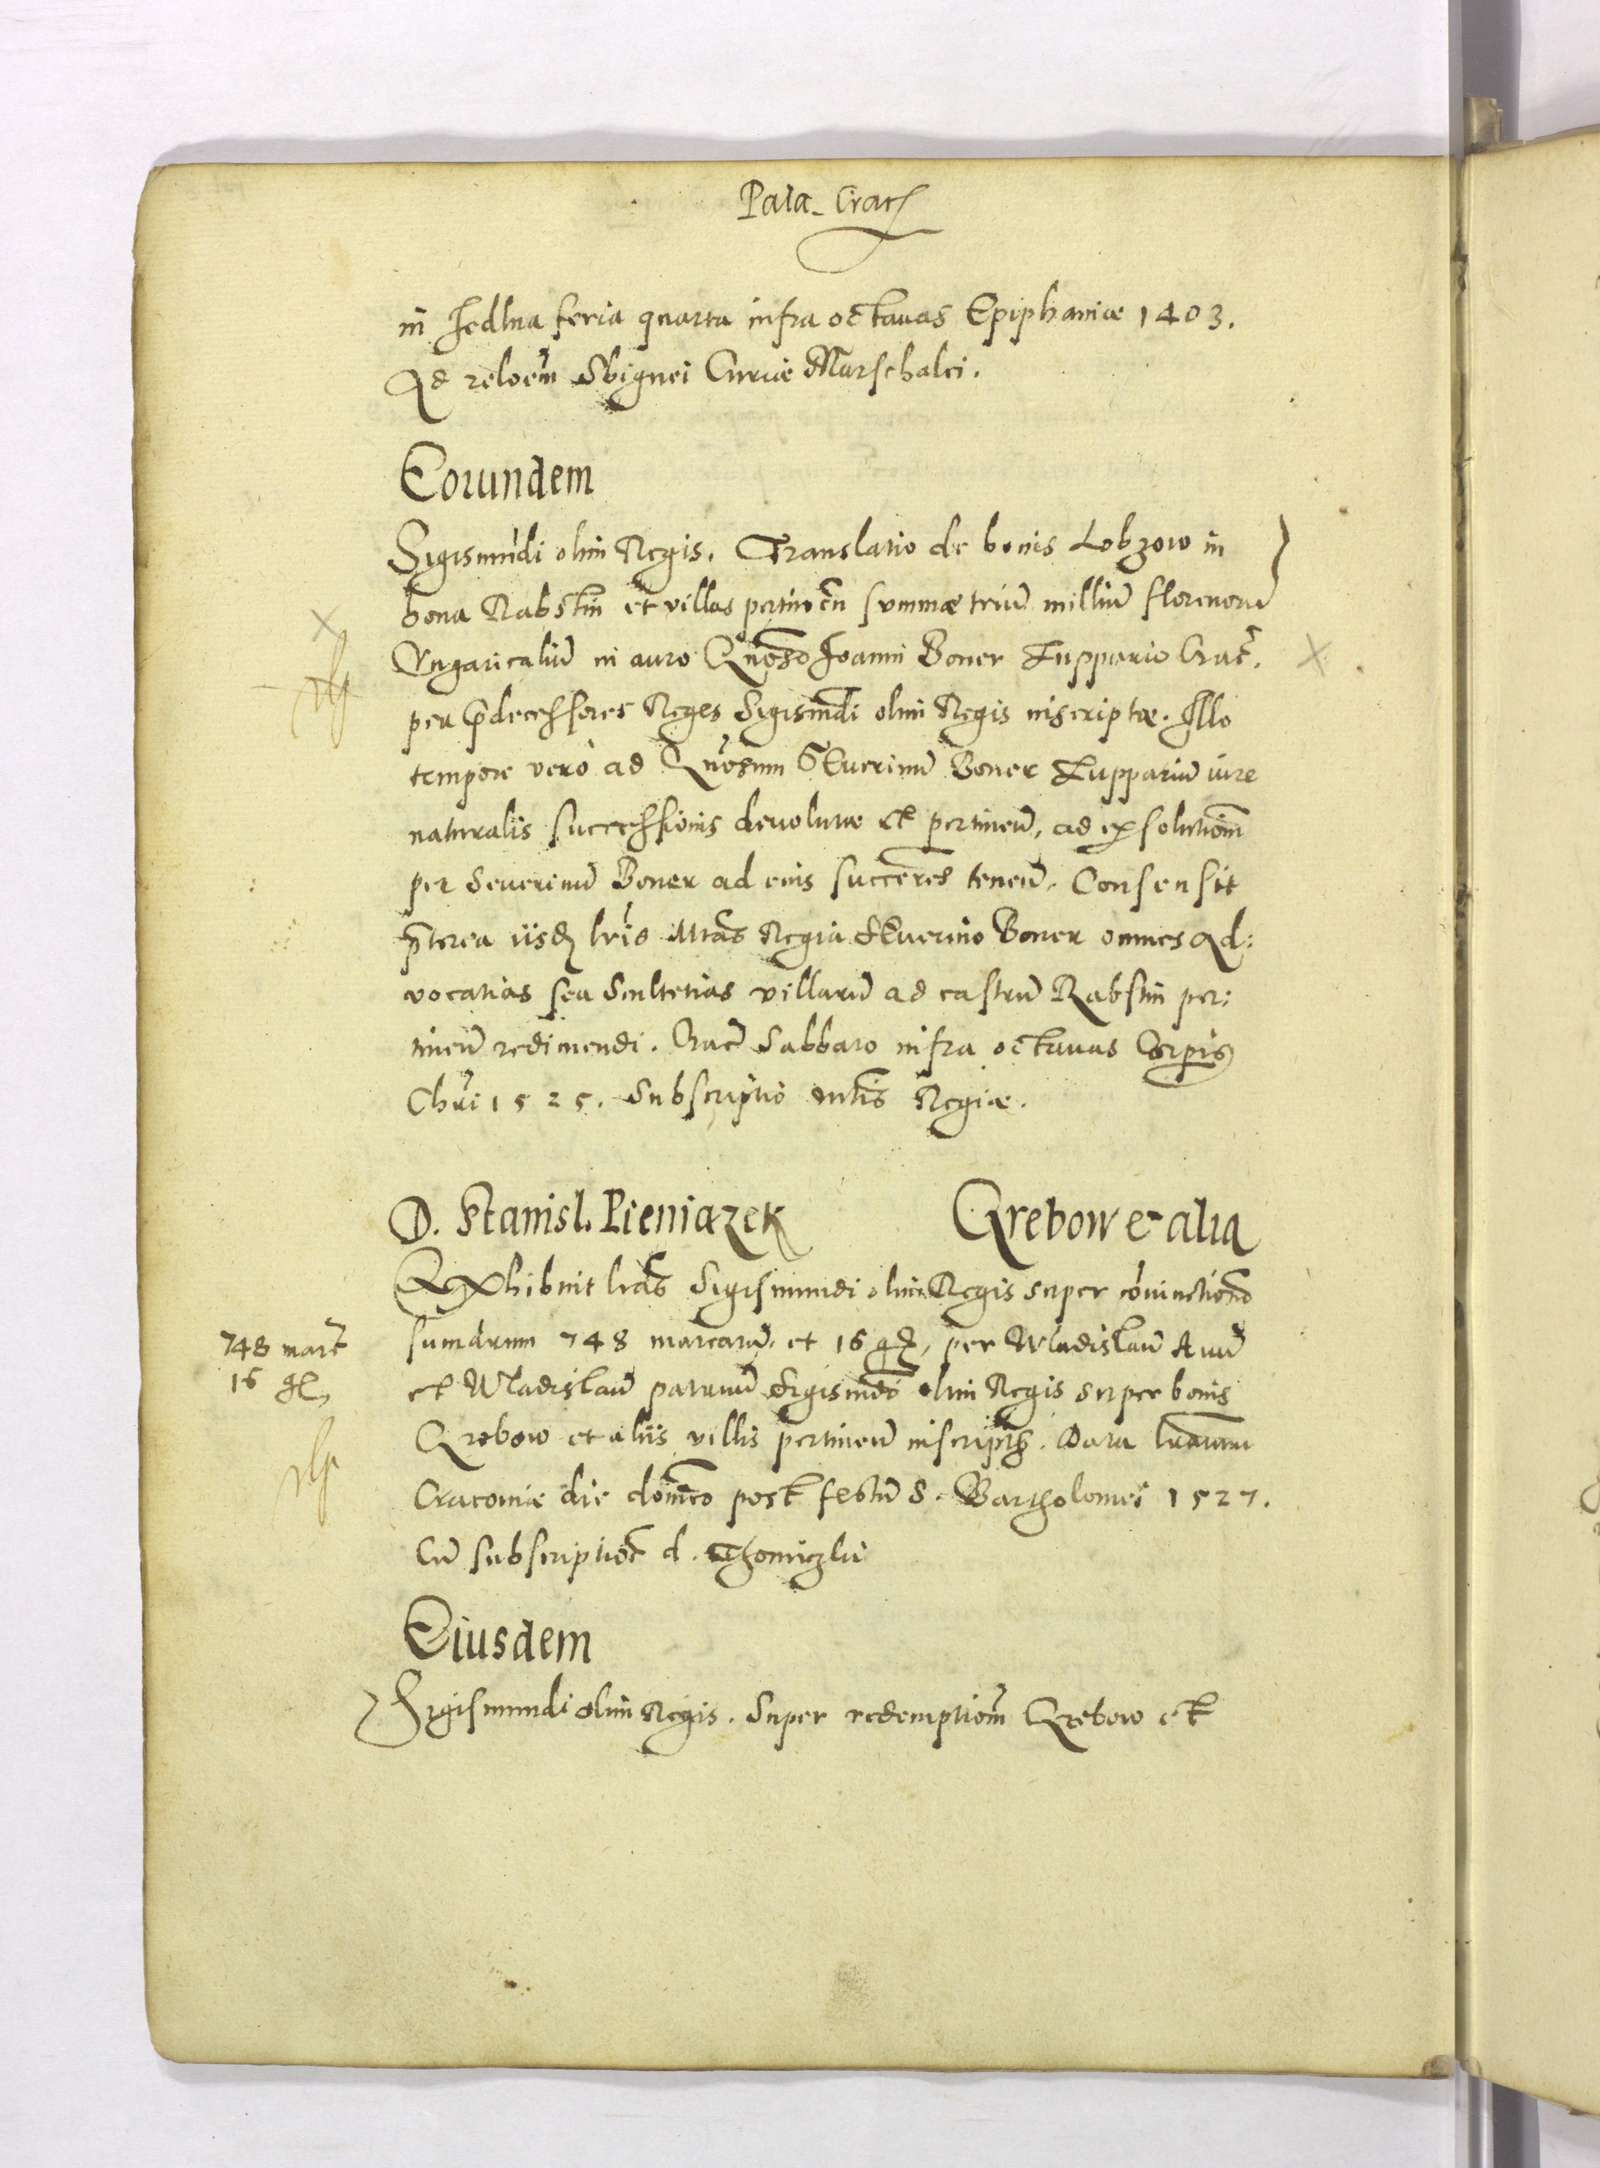 Pala. Crac
in Jedlna feria quarta infra octauas Epiphaniæ 1403.
Ad reloem Sbignei Curiæ Marschalci.
Eorundem
Sigismudi olim Regis. Translatio de bonis Lobzow in
bona Rabstin et villas pertinen summæ trium millium florenorum
Vngaricalium in auro Gnoso Joanni Boner Zuppario Crac.
per prædecessores Reges Sigismdi olim Regis inscriptæ. Illo
tempore vero ad Gnosum Seuerinum Boner Zupparium iure
naturalis successionis deuolutæ et pertinen, ad exsolutionem
per Seuerinum Boner ad eius successores tenen. Consensit
præterea iisdem lris Mtas Regia Seuerino Boner omnes Ad:
vocatias seu Scultetias villarum ad castrum Rabstin per:
tinen redimendi. Crac Sabbato infra octauas Corpis
Chri 1525. Subscriptio Mtis Regiæ.
D. Stanisl. Pieniazek Grebow et alia
Exhibuit lras Sigismundi olim Regis super coniunctione
sumarum 748 marcarum et 16 gr, per Wladislaum Auum
et Wladislaum patruum Sigismdi olim Regis super bonis
Grebow et aliis villis pertinen inscriptis. Data lrarum
Cracoviæ die dominico post festum S. Bartholomei 1527.
Cum subscriptione d. Thomiczki
748 marc
16 gr
Eiusdem
Sigismundi olim Regis. Super redemptionem Grebow et